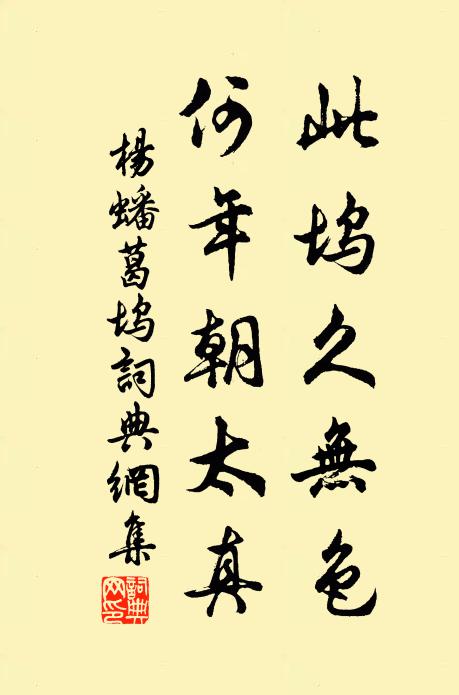 此塢久無色
何年朝太真
楊蟠葛塢詞典網集
詞典网印